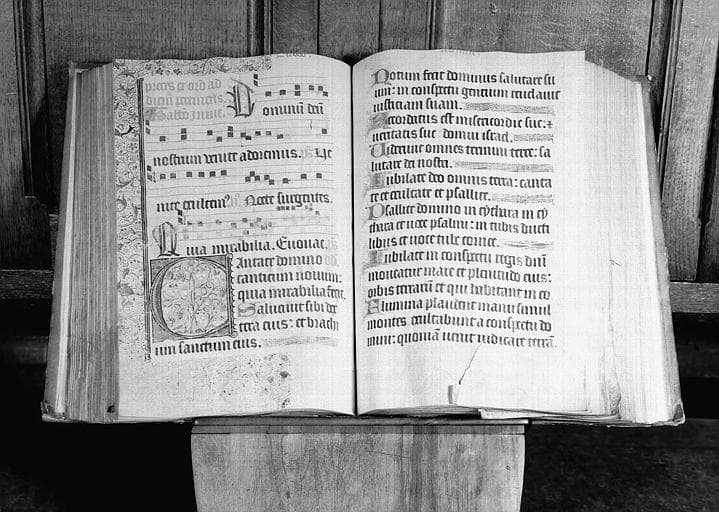 dominum deum
nostrum venite adoremus. ps Ve
nite exultem⁹. Nocte surgentes.
Quia mirabilia. Euouae. ps
Cantate domino
canticum novum:
quia mirabilia fecit.
Salvavit sibi dex
tera eius: et brachi
um sanctum eius.
Notum fecit dominus salutare su
um: in conspectu gentium revelavit
iusticiam suam.
Recordatus est misericordie sue: et
veritatis sue domui israel.
Viderunt omnes termini terre: sa
lutare dei nostri.
Iubilate deo omnis terra: canta
te et exultate et psallite.
Psallite domino in cythara in cy
thara et voce psalmi: in tubis ducti
libus et voce tube cornee.
Iubilate in conspectu regis dñi
moveatur mare et plenitudo eius:
orbis terrarũ et qui habitant in eo
Flumina plaudent manu simul
montes exultabunt a conspectu do
mini: quoniã venit iudicare terrã.